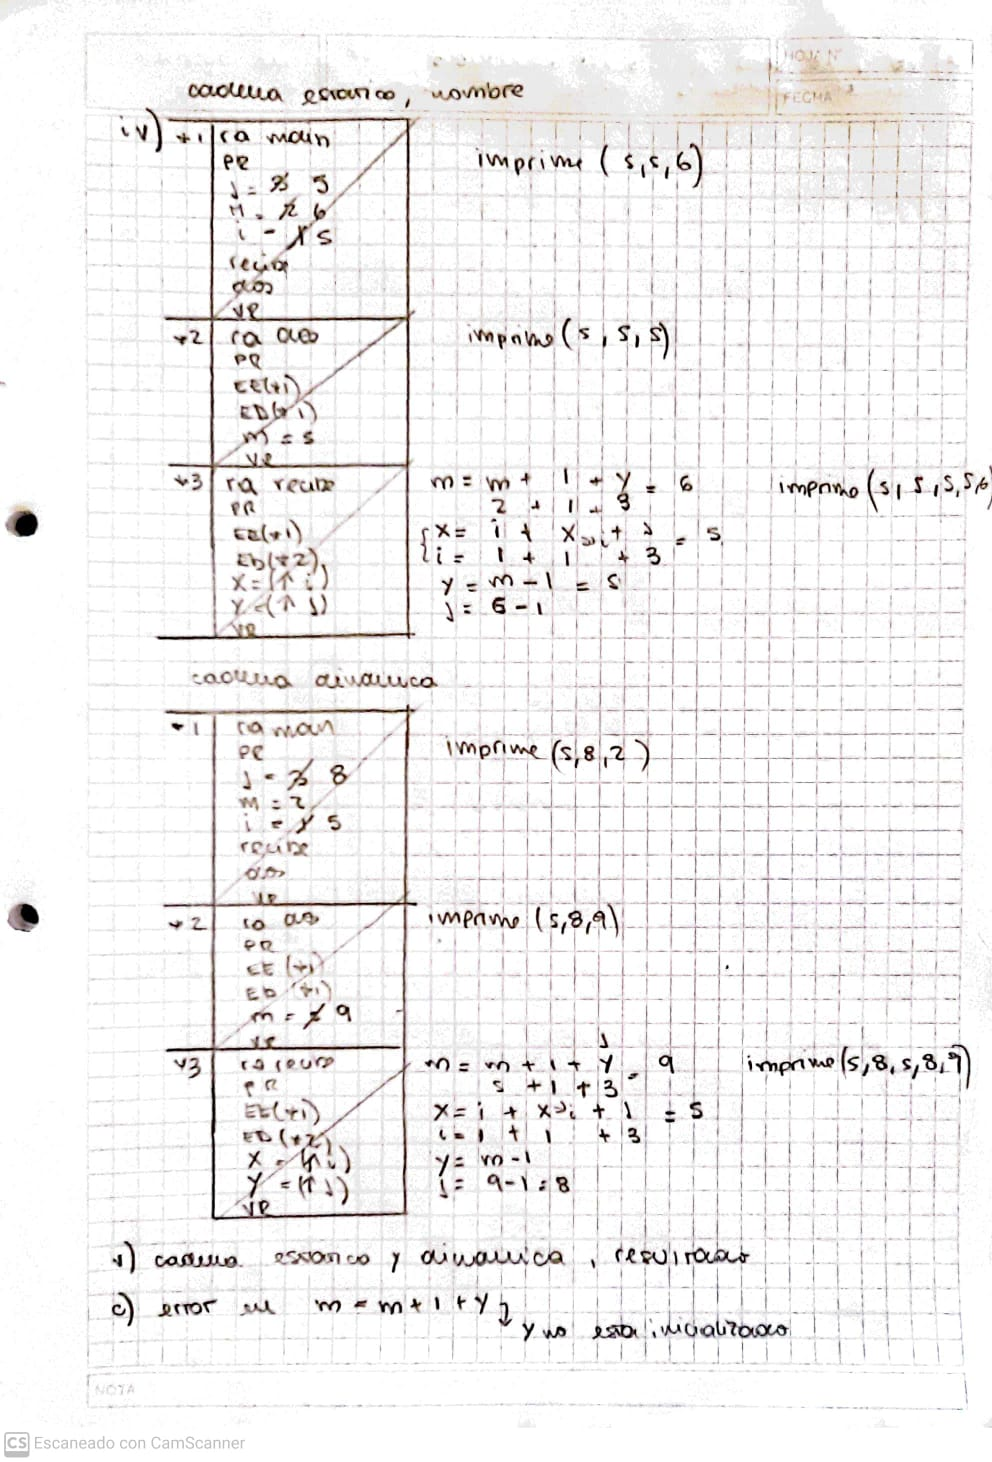 HOJA Nº
FECHA
cadena estatico, nombre
iv) *1 ra main
PR
j = 3 5
M = 2 6
i = 1 5
recibe
dos
VR
imprime (5,5,6)
*2 ra dos
PR
EE(*1)
ED(*1)
m = 5
VR
imprimo (5,5,5)
*3 ra recibe
PR
EE(*1)
ED(*2)
X = (↑ i)
Y = (↑ J)
VR
m = m + 1 + y = 6
2 + 1 + 3
{ X = i + X→i + j = 5
i = 1 + 1 + 3
y = m - 1 = 5
j = 6 - 1
imprimo (5,5,5,5,6)
cadena dinamica
*1 ra main
PR
j = 3 8
m = 2
i = 1 5
recibe
dos
VR
imprime (5,8,2)
*2 ra dos
PR
EE (*1)
ED (*1)
m = 5 9
VR
imprimo (5,8,9)
*3 ra recibe
PR
EE(*1)
ED (*2)
X = (↑ i)
Y = (↑ J)
VR
j
m = m + 1 + y = 9
5 + 1 + 3
X = i + X→i + 1 = 5
i = 1 + 1 + 3
y = m - 1
j = 9 - 1 = 8
imprime (5,8,5,8,9)
v) cadena estatico y dinamica, resultado
c) error en m = m + 1 + y
y no esta inicializado
NOTA
CS Escaneado con CamScanner